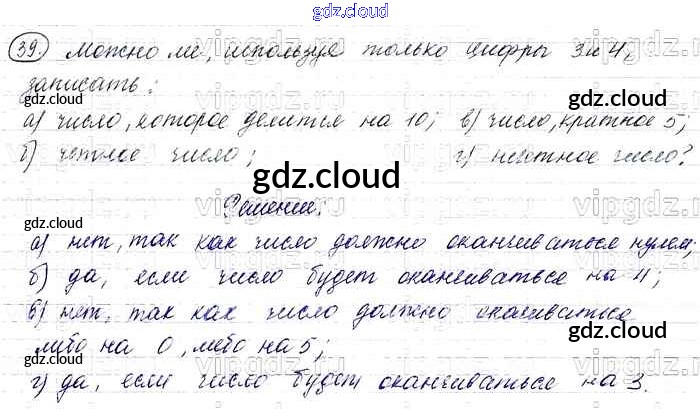 gdz.cloud
39. Можно ли, используя только цифры 3 и 4,
записать:
а) число, которое делится на 10; в) число, кратное 5;
б) четное число; г) нечетное число?
Решение:
а) нет, так как число должно оканчиваться нулем;
б) да, если число будет оканчиваться на 4;
в) нет, так как число должно оканчиваться
либо на 0, либо на 5;
г) да, если число будет оканчиваться на 3.
gdz.cloud
gdz.cloud
gdz.cloud
gdz.cloud
gdz.cloud
gdz.cloud
gdz.cloud